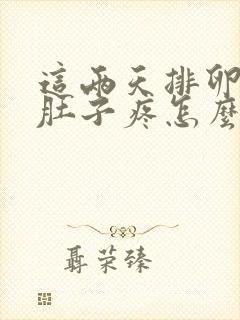 這兩天排卵
肚子疼怎麼
聶荣臻